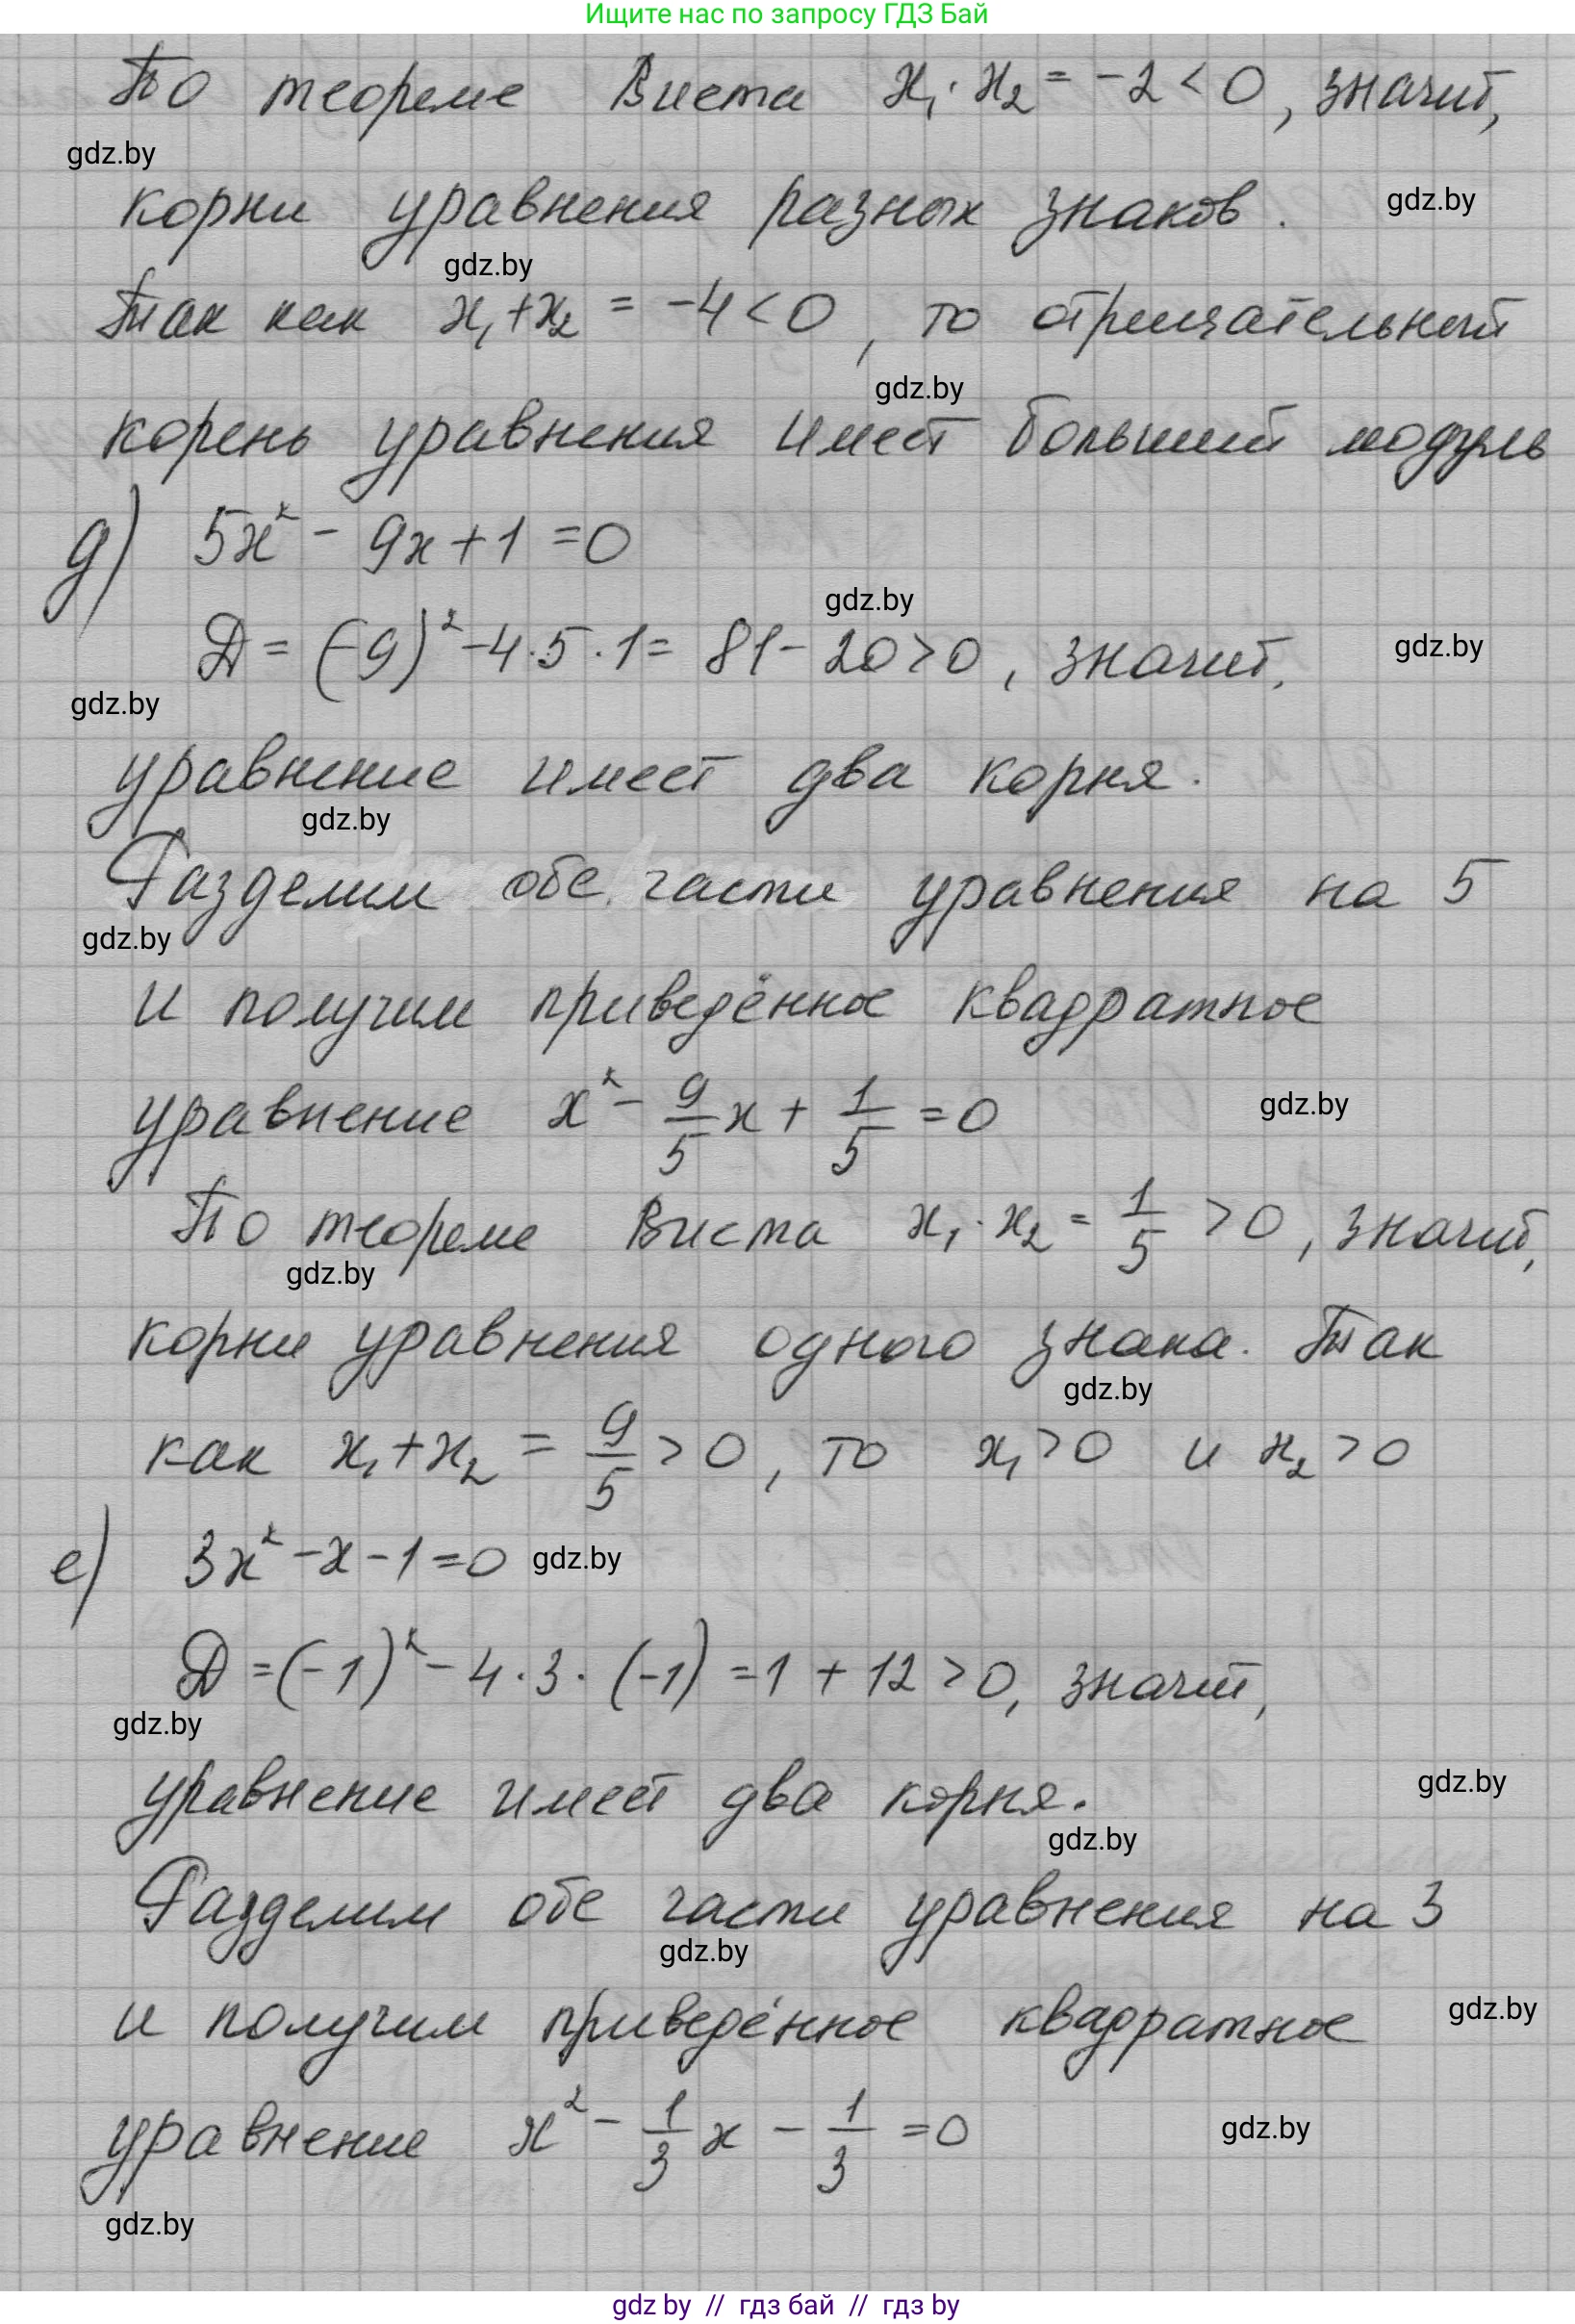 Ищите нас по запросу ГДЗ Бай
По теореме Виета x₁·x₂ = -2 < 0, значит,
gdz.by
корни уравнения разных знаков.
gdz.by
gdz.by
Так как x₁+x₂ = -4 < 0, то отрицательный
gdz.by
корень уравнения имеет больший модуль
д) 5x² - 9x + 1 = 0
gdz.by
D = (-9)² - 4·5·1 = 81 - 20 > 0, значит,
gdz.by
gdz.by
уравнение имеет два корня.
gdz.by
Разделим обе части уравнения на 5
gdz.by
и получим приведённое квадратное
уравнение x² - 9/5 x + 1/5 = 0
gdz.by
По теореме Виета x₁·x₂ = 1/5 > 0, значит,
gdz.by
корни уравнения одного знака. Так
gdz.by
как x₁+x₂ = 9/5 > 0, то x₁ > 0 и x₂ > 0
е) 3x² - x - 1 = 0
gdz.by
D = (-1)² - 4·3·(-1) = 1 + 12 > 0, значит,
gdz.by
уравнение имеет два корня.
gdz.by
gdz.by
Разделим обе части уравнения на 3
gdz.by
и получим приведённое квадратное
gdz.by
уравнение x² - 1/3 x - 1/3 = 0
gdz.by
gdz.by
gdz by // гдз бай // гдз by